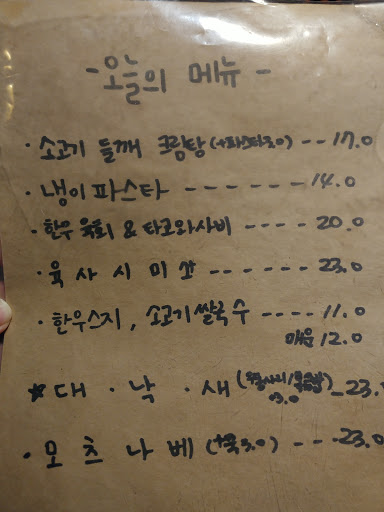 - 오늘의 메뉴 -
· 소고기 들깨 크림탕 (+파스타3.0) -- 17.0
· 냉이파스타 ------ 14.0
· 한우 육회 & 타코와사비 ---- 20.0
· 육사시미 ------ 23.0
· 한우스지, 소고기쌀국수 ---- 11.0
매운 12.0
* 대 · 낙 · 새 ( 3.0 - 23.
· 모츠나베 ( 3.0) --- 23.0